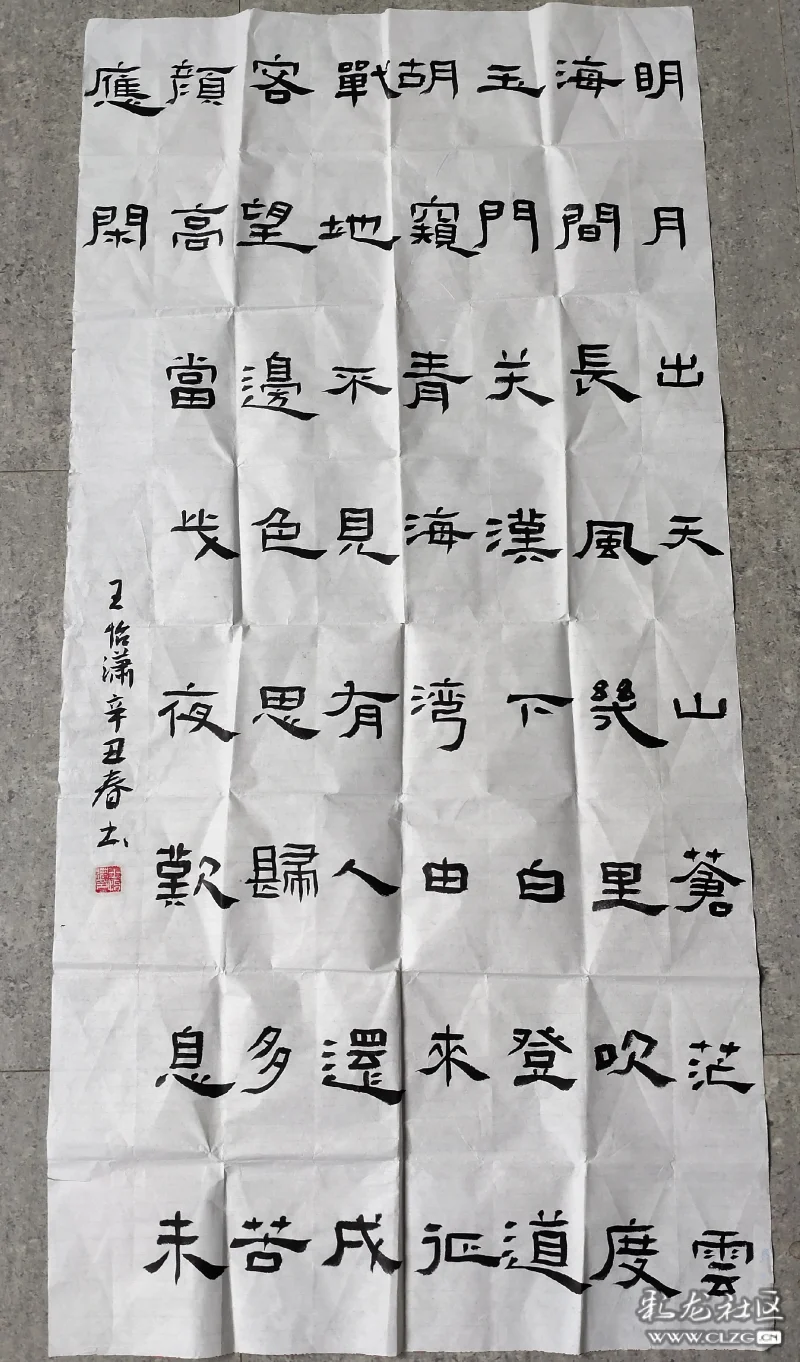 明月出天山蒼茫雲
海間長風幾里吹度
玉門关漢下白登道
胡窺青海湾由來征
戰地不見有人還戍
客望邊色思歸多苦
顔高當此夜歎息未
應閑
王怡潇辛丑春书
彩龙社区
WWW.CLZG.CN